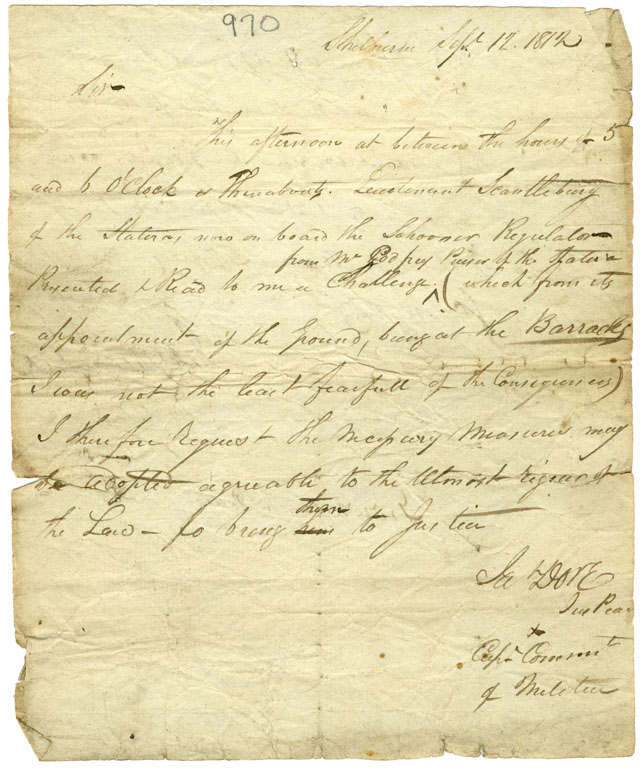 970
Shelburne Sepr. 12. 1812
Sir
This afternoon at between the hours of 5
and 6 O'Clock or thereabouts. Lieutenant Scantlebury
of the Statira, now on board the Schooner Regulator
from Mr Godfrey Purser of the Statira
Presented & Read to me a Challenge, (which from its
appointment of the Ground, being at the Barracks
I was not the least fearfull of the Consequences)
I therefore request the necessary measures may
be adopted agreable to the Utmost rigour of
the Law – to bring them to Justice
Ja DORE
Jus Peac
&
Capn Commt
of Militia